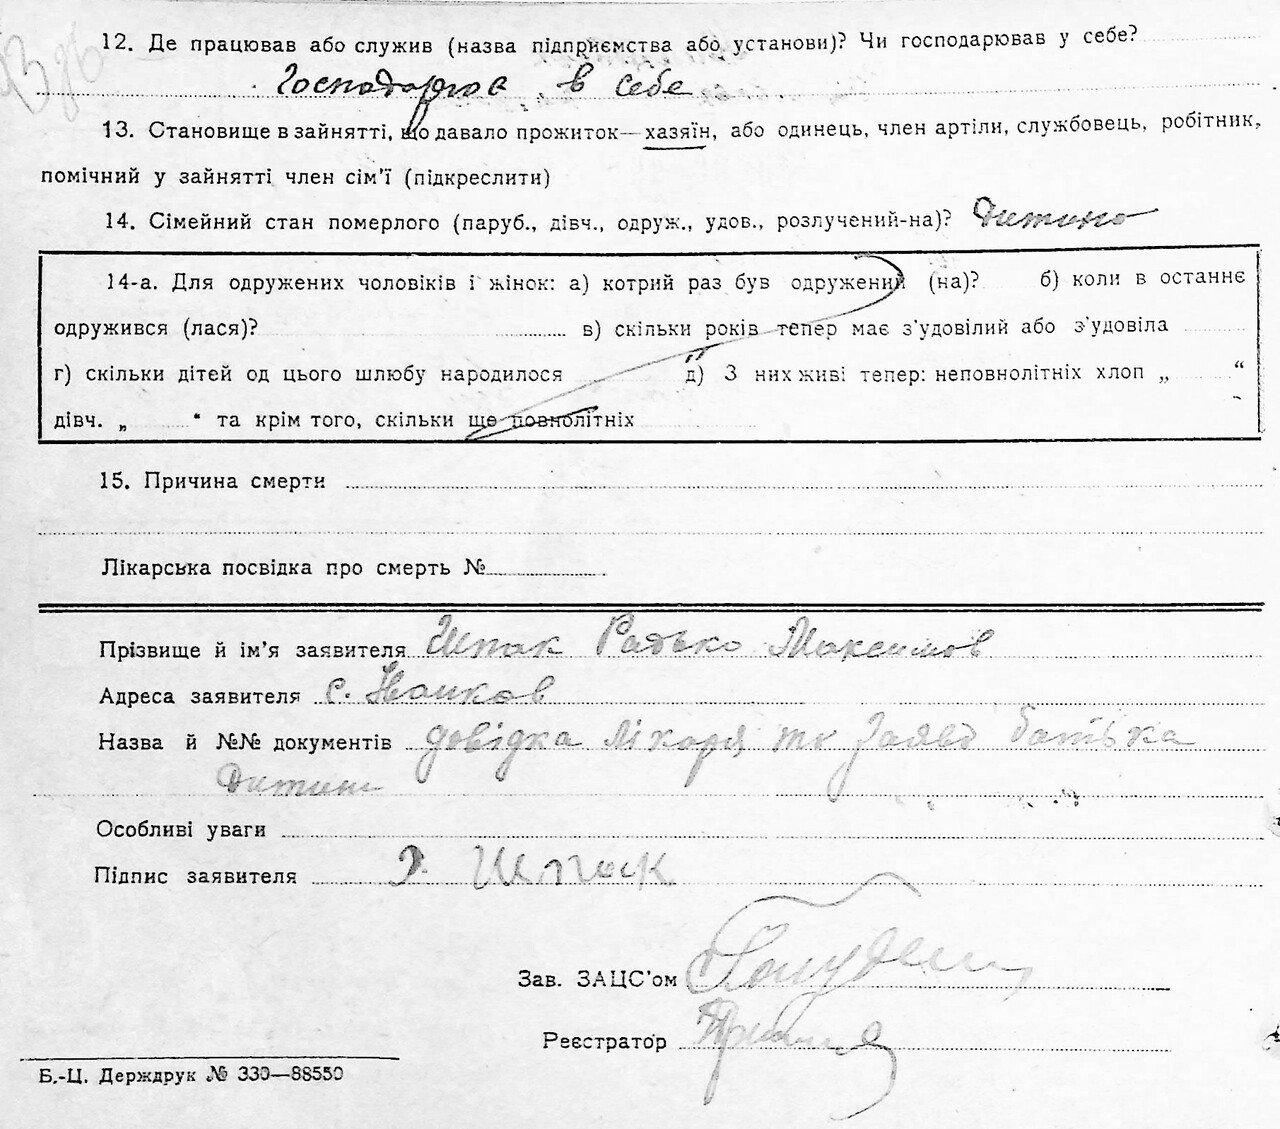 12. Де працював або служив (назва підприємства або установи)? Чи господарював у себе?
Господарюв в себе
13. Становище в зайнятті, що давало прожиток—хазяїн, або одинець, член артіли, службовець, робітник,
помічний у зайнятті член сім'ї (підкреслити)
14. Сімейний стан померлого (паруб., дівч., одруж., удов., розлучений-на)? Дитина
14-а. Для одружених чоловіків і жінок: а) котрий раз був одружений (на)? б) коли в останнє
одружився (лася)? в) скільки років тепер має з'удовілий або з'удовіла
г) скільки дітей од цього шлюбу народилося д) З них живі тепер: неповнолітніх хлоп „ “
дівч. „ “ та крім того, скільки ще повнолітніх
15. Причина смерти
Лікарська посвідка про смерть №
Прізвище й ім'я заявителя Шпак Радько Максимов
Адреса заявителя с.
Назва й №№ документів довідка лікаря та заява батька
дитини
Особливі уваги
Підпис заявителя Р. Шпак
Зав. ЗАЦС'ом
Реєстратор
Б.-Ц. Держдрук № 330—88550